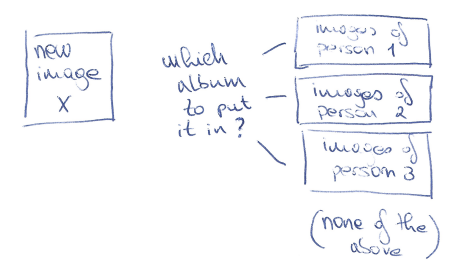 new
image
X
which
album
to put
it in?
images of
person 1
images of
person 2
images of
person 3
(none of the
above)